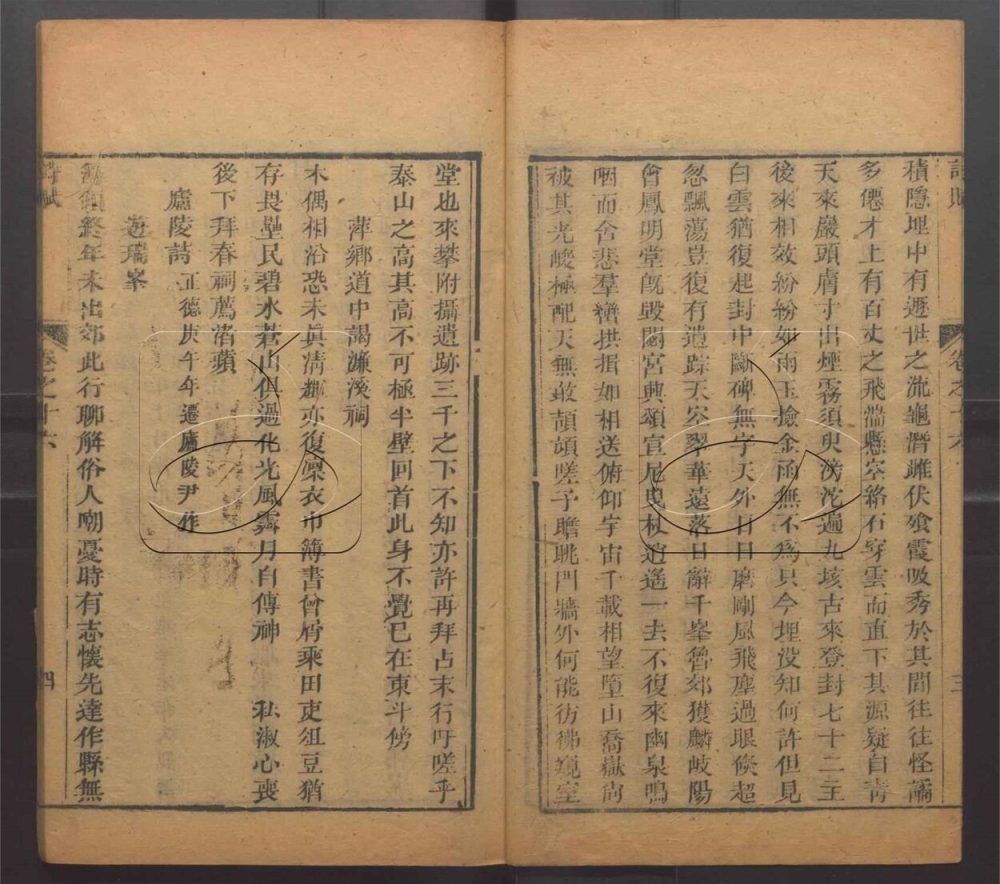 詩賦
卷之十六
三
積隱埋中有遯世之流龜潛雌伏飱霞吸秀於其間往往怪譎
多僊才上有百丈之飛湍懸空絡石穿雲而直下其源疑自青
天來巖頭膚寸出煙霧須臾滂沱遍九垓古來登封七十二主
後來相效紛紛如雨玉撿金函無不爲只今埋没知何許但見
白雲猶復起封中斷碑無字天外日日磨剛風飛塵過眼倐超
忽飄蕩豈復有遺踪天空翠華遠落日辭千峯魯郊獲麟岐陽
會鳳明堂旣毀閟宮興頌宣尼曳杖逍遙一去不復來幽泉鳴
咽而含悲羣巒拱揖如相送俯仰宇宙千載相望墮山喬嶽尙
被其光峻極配天無敢頡頏嗟予瞻眺門牆外何能彷彿窺室
堂也來攀附攝遺跡三千之下不知亦許再拜占末行吁嗟乎
泰山之高其高不可極半壁回首此身不覺已在東斗傍
萍鄉道中謁濂溪祠
木偶相沿恐未眞淸輝亦復凜衣巾簿書曾屑乘田吏俎豆猶
存畏壘民碧水蒼山俱過化光風霽月自傳神 私淑心喪
後下拜春祠薦渚蘋
廬陵詩 正德庚午年遷廬陵尹作
遊瑞峯
終年未出郊此行聊解俗人嘲憂時有志懷先達作縣無
詩賦
卷之十六
四